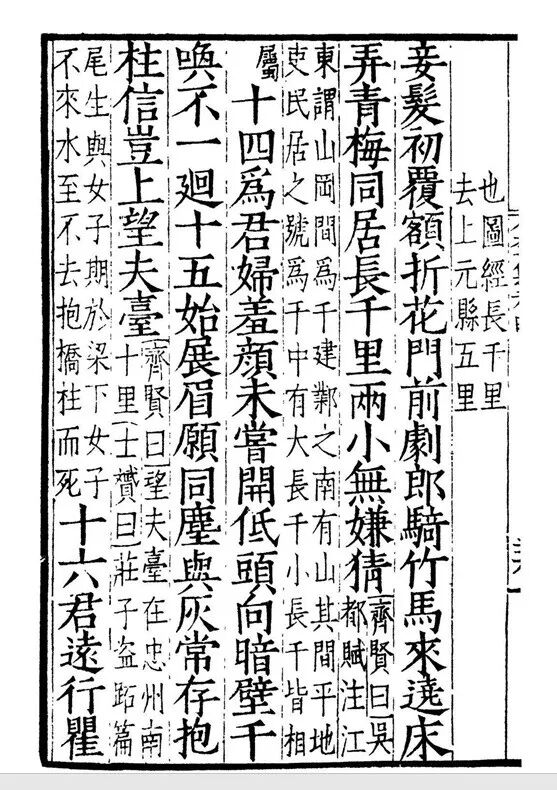 也圖經長千里
去上元縣五里
妾髮初覆額折花門前劇郎騎竹馬來遶床
弄青梅同居長千里兩小無嫌猜
齊賢曰吳
都賦注江
東謂山岡間爲千建鄴之南有山其間平地
吏民居之號爲千中有大長千小長千皆相
屬
十四爲君婦羞顏未嘗開低頭向暗壁千
喚不一廻十五始展眉願同塵與灰常存抱
柱信豈上望夫臺
齊賢曰望夫臺在忠州南
十里士贇曰莊子盜跖篇
尾生與女子期於梁下女子
不來水至不去抱橋柱而死
十六君遠行瞿